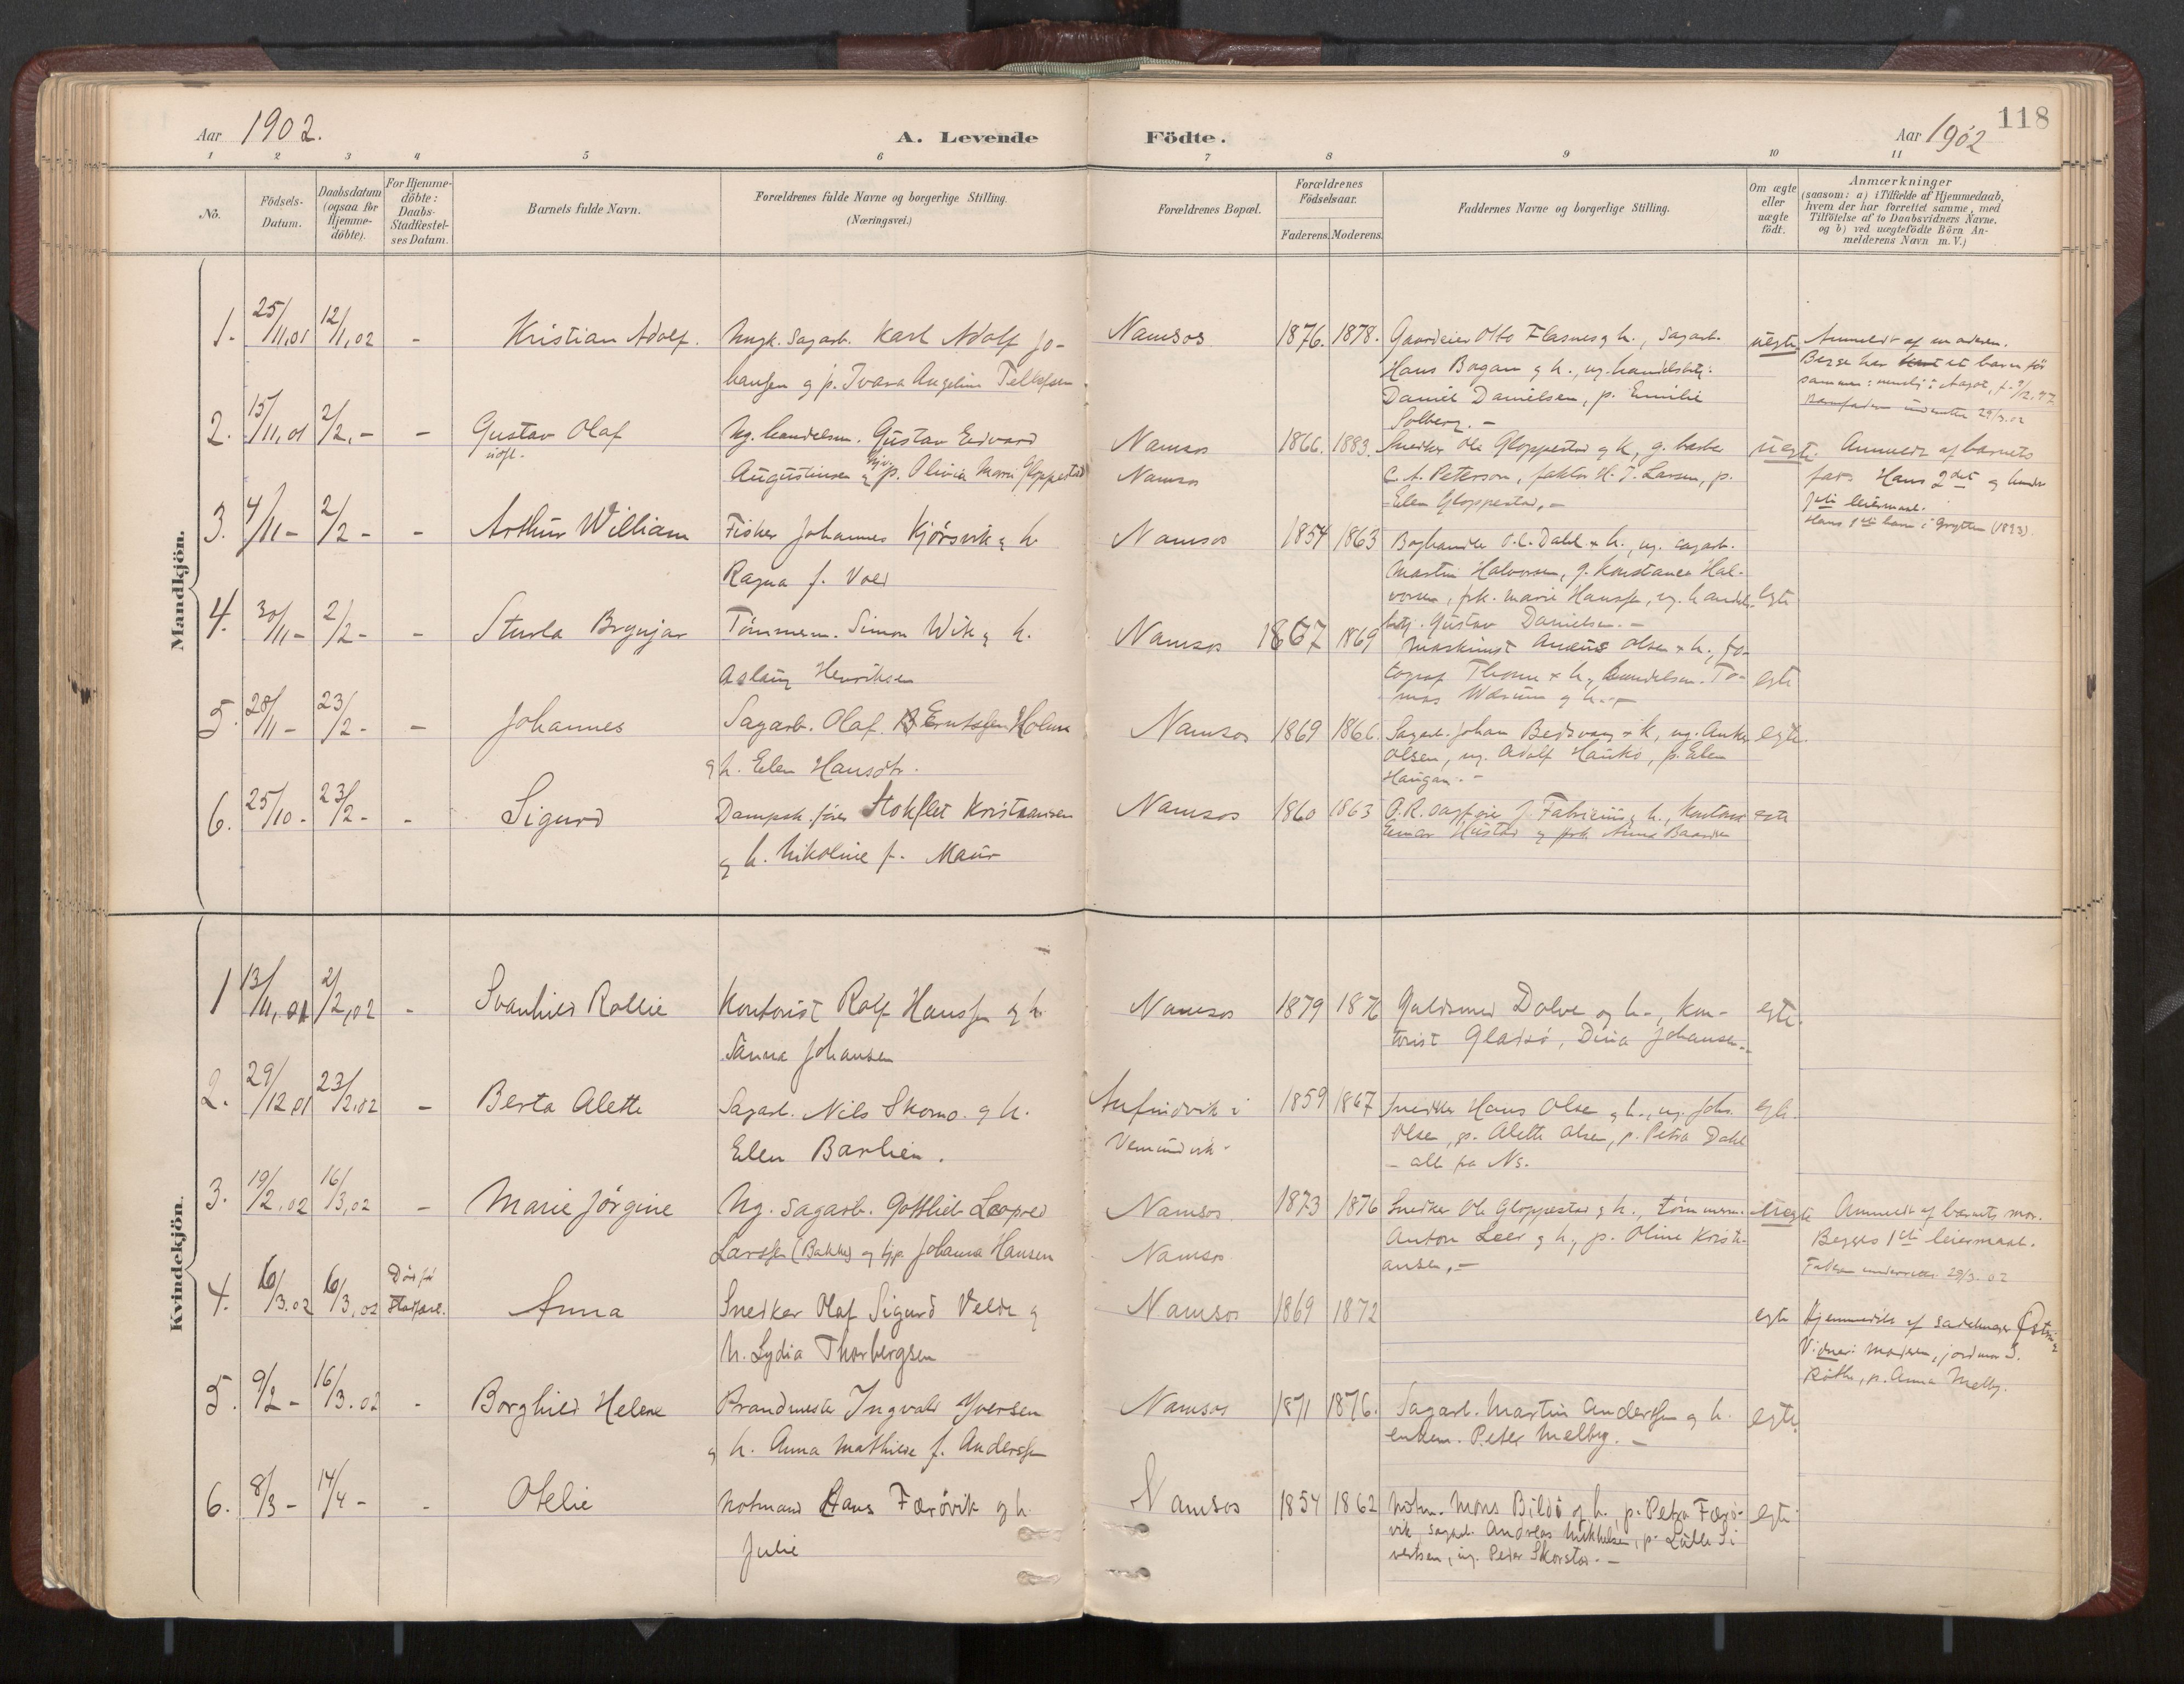 118
Aar 1902.
A. Levende
Födte.
Aar 1902
1 2 3 4 5 6 7 8 9 10 11
No.
Födsels-Datum.
Daabsdatum (ogsaa for Hjemme-döbte).
For Hjemme-döbte: Daabs-Stadfæstel-ses Datum.
Barnets fulde Navn.
Forældrenes fulde Navne og borgerlige Stilling.
(Næringsvei.)
Forældrenes Bopæl.
Forældrenes Födselsaar.
Faderens. Moderens.
Faddernes Navne og borgerlige Stilling.
Om ægte eller uægte födt.
Anmærkninger
(saasom: a) i Tilfælde af Hjemmedaab, hvem der har forrettet samme, med Tilföielse af to Daabsvidners Navne. og b) ved uægtefödte Börn An-melderens Navn m. V.)
Mandkjön.
1. 25/11,01 12/1,02 - Kristian Adolf. Ungk. Sagarb. Karl Adolf Jo-
hansen g p. Ivara Angeline Tellefsen
Namsos 1876. 1878.
Gaardeier Otto Flasnes g h., Sagarb.
Hans Bagan g h., ug. handelsbetj.
Daniel Danielsen, p. Emilie
Solberg. -
uegte. Anmeldt af moderen.
Begge har et barn før
sammen:
29/3.02
2. 15/11,01 2/2,- - Gustav Olaf
Ug. handelsm. Gustav Edvard
Augustinsen g p. Olivia Marie Gloppestad
Namsos
Namsos
1866. 1883.
Snedker Ole Gloppestad g h, g. barber
C. A. Peterson, faktor H. J. Larsen, p.
Elen Gloppestad, -
uegte. Anmeldt af barnets
far. Hans 2det og hendes
1ste leiermaal.
Hans 1ste barn i Grytten (1893).
3. 4/11- 2/2- - Arthur William
Fisker Johannes Kjörsvik g h.
Ragna f. Vold
Namsos 1854 1863
Boghandler O. C. Dahl & h., ug. sagarb.
Martin Halvorsen, p. Konstance Hal-
vorsen, frk. Marie Hanssen, ug. handels-
betj. Gustav Danielsen. -
egte
4. 30/11- 2/2- - Sturla Brynjar
Tömmerm. Simon Wik g h.
Aslaug Henriksen
Namsos 1867 1869
Maskinist Olsen & h., fo-
tograf Thorn & h., handelsm. To-
mas Wærum g h. -
egte
5. 28/11- 23/2- - Johannes
Sagarb. Olaf Erntsen Holm
g h. Elen Hansdtr.
Namsos 1869 1866.
Sagarb. Johan Bedsvaag & h, ug. Anker
Olsen, ug. Adolf Hauko, p. Elen
Haugan. -
egte.
6. 25/10- 23/2- - Sigurd
Dampsk. fører Stokflet Kristiansen
g h. Nikoline f. Maur
Namsos 1860 1863
O.R. sagfører J. Fabricius g h., kontorist
Einar Hustad g frk. Anna Baardsen
egte
Kvindekjön.
1 13/11,01 2/2,02 - Svanhild Rollie
Kontorist Rolf Hanssen g h.
Sanna Johansen
Namsos 1879 1876
Guldsmed Dolve og h., kon-
torist Gladsø, Dina Johansen.-
egte.
2. 29/12 01 23/2,02 - Berta Alette
Sagarb. Nils Skomo. g h.
Elen Barlien.
Anfindvik i
Vemundvik.
1859 1867
Snedker Hans Olsen g h., ug. Johs.
Olsen, p. Alette Olsen, p. Petra Dahl
- alle fra Ns.
egte.
3. 19/2,02 16/3,02 - Marie Jörgine
Ug. Sagarb. Gottlieb Leopold
Larssen (Bakke) og tjp. Johanna Hansen
Namsos.
Namsos
1873 1876
Snedker Ole Gloppestad g h., tömmerm.
Anton Leer g h, p. Oline Kristi-
ansen, -
uegte
Anmeldt af barnets mor.
Begges 1ste leiermaal.
Faderen underrettet 29/3.02
4. 6/3.02 6/3,02 Död før Stadfæst.
Anna
Snedker Olaf Sigurd Velde g
h. Lydia Thorbergsen
Namsos 1869 1872
egte
Hjemmedöbt af sadelmager
Vidner: Madsen, jordmor S.
Röthe, p. Anna Melby.
5. 9/2- 16/3.02 - Borghild Helene
Brandmester Ingvald Iversen
g h. Anna Mathilde f. Anderssen
Namsos 1871 1876.
Sagarb. Martin Anderssen g h.
enkem. Peter Melby. -
egte.
6. 8/3- 14/4- - Otelie
Notmand Hans Færövik og h.
Julie
Namsos 1854 1862
Notm. Mons Bildö g h., p. Petra Færö-
vik, sagarb. Andreas Mikkelsen, p. Lalla Si
vertsen, ug. Peder Skorstad. -
egte.